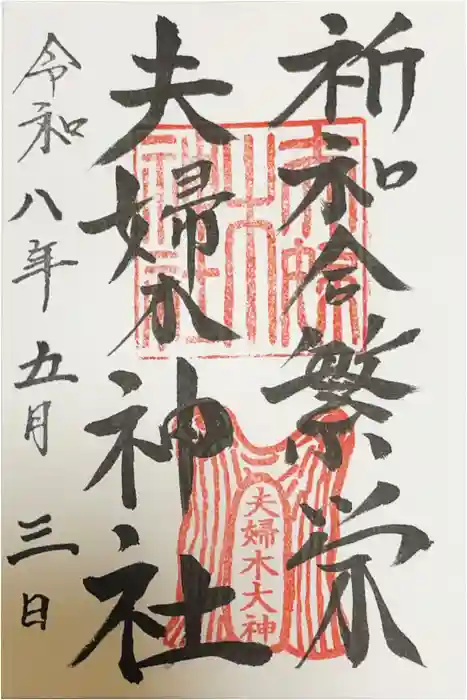 祈和合繁栄
夫婦木神社
令和八年五月三日
夫婦木神社
夫婦木大神